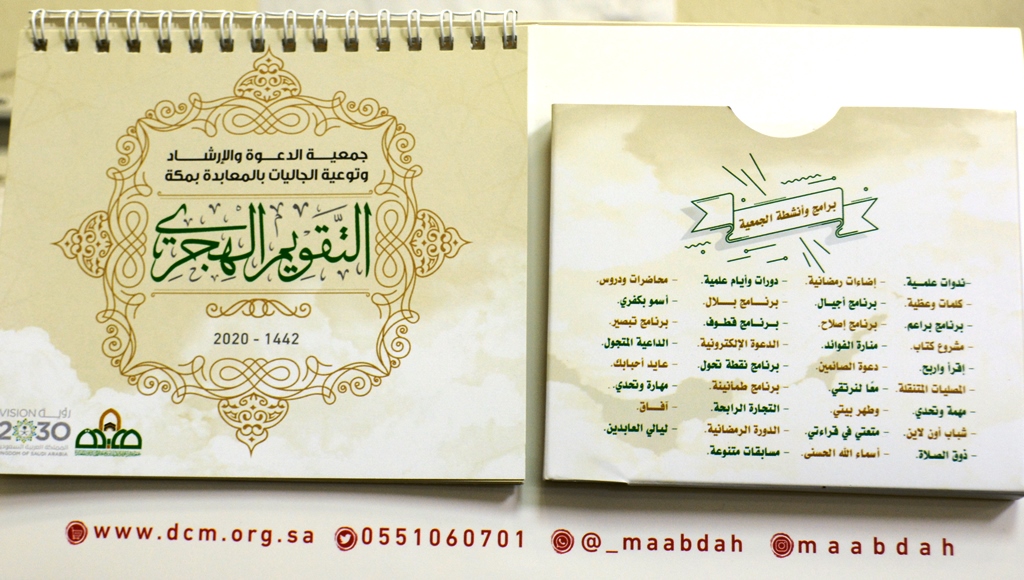 جمعية الدعوة والإرشاد
وتوعية الجاليات بالمعابدة بمكة
التقويم الهجري
2020 - 1442
VISION رؤيــة
2030
المملكة العربية السعودية
KINGDOM OF SAUDI ARABIA
برامج وأنشطة الجمعية
-ندوات علمـية.
- كلمات وعظية.
- برنامج براعم.
- مشروع كتاب.
- إقرأ واربح.
- المصليات المتنقلة
- مهمة وتحدي.
- شباب أون لاين.
- ذوق الصلاة.
- إضاءات رمضانية.
- برنامج أجيـال.
- برنامج إصلاح.
- منارة الفوائد.
- دعوة الصائمين.
- معًا لنرتقي.
- وطهر بيتي.
- متعتي في قراءتي.
- أسماء الله الحسنى.
- دورات وأيام علمية.
- برنـــامج بـــلال.
- برنـامج قطـوف.
- الدعوة الإلكترونية.
- برنامج نقطة تحول.
- برنامج طمأنينة.
- التجارة الرابحة.
- الدورة الرمضانية.
- مسابقات متنوعة.
- محاضرات ودروس.
- أسمو بكفري.
- برنامج تبصير.
- الداعية المتجول.
- عايد أحبابك.
- مهارة وتحدي.
- آفــاق.
- ليالي العابدين.
www.dcm.org.sa 0551060701 @_maabdah maabdah